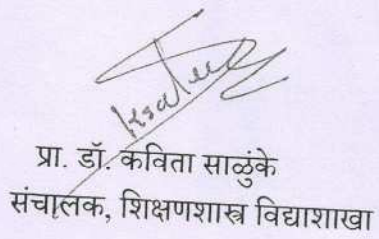 प्रा. डॉ. कविता साळुंके
संचालक, शिक्षणशास्त्र विद्याशाखा